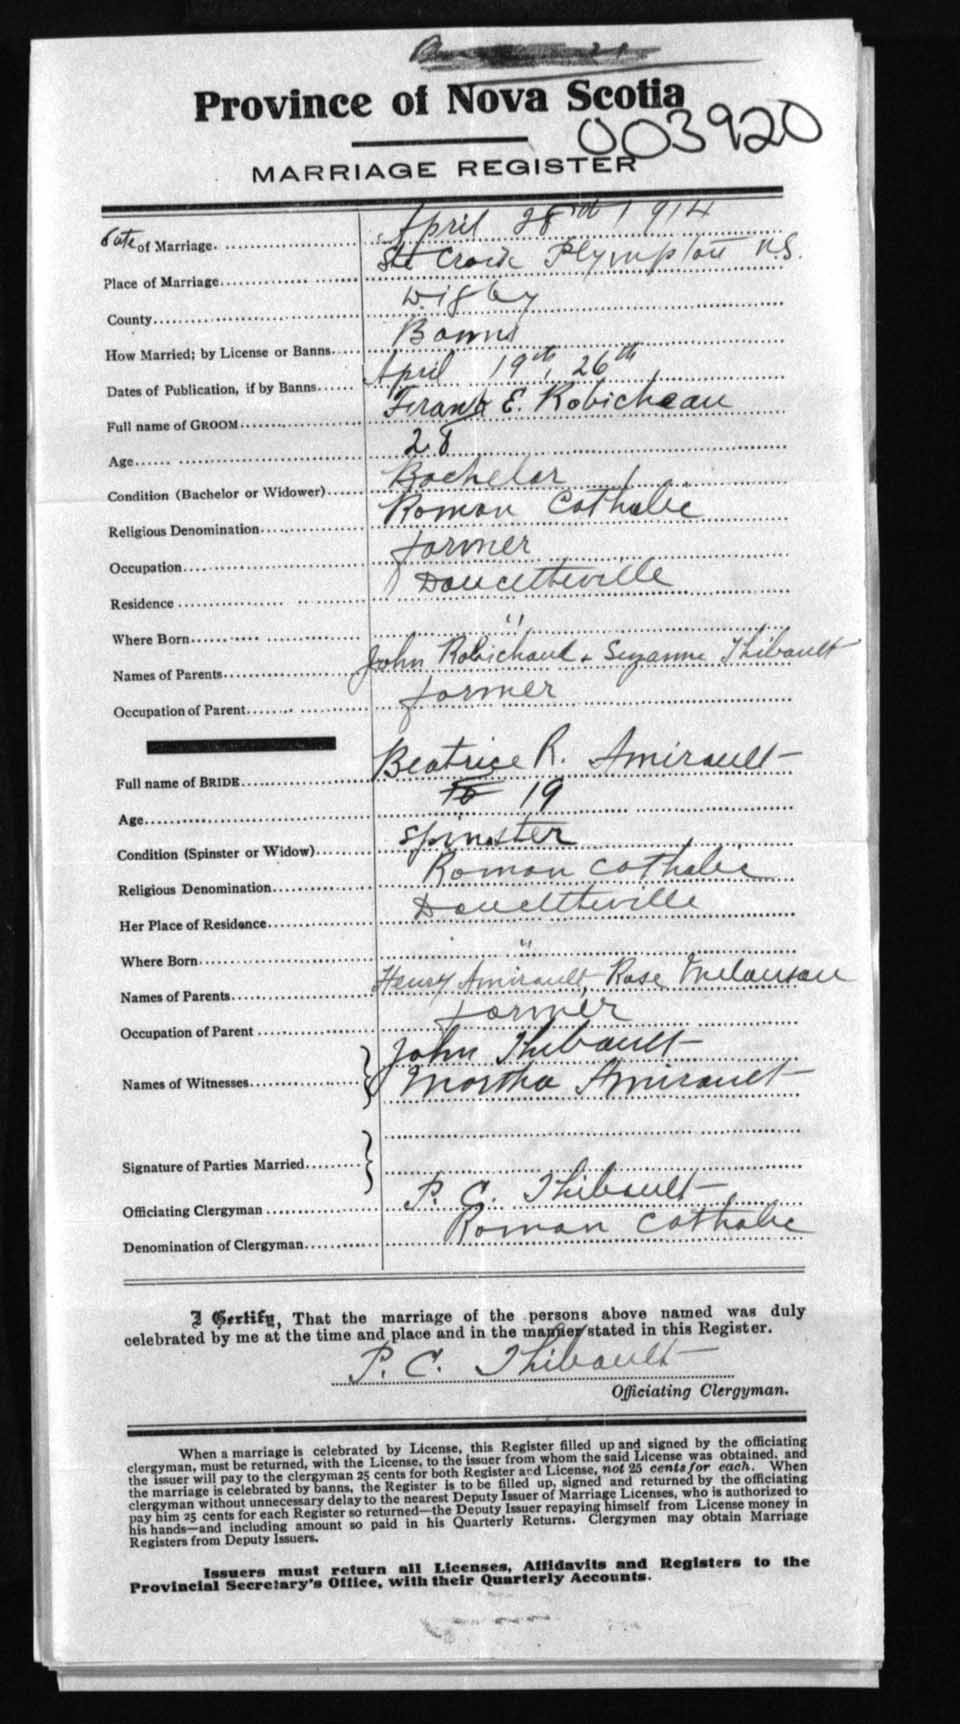 Province of Nova Scotia
003920
MARRIAGE REGISTER
Date of Marriage. April 28th 1914
Place of Marriage. Ste Croix Plympton N.S.
County. Digby
How Married; by License or Banns. Banns
Dates of Publication, if by Banns. April 19th, 26th
Full name of GROOM. Frank E. Robicheau
Age. 28
Condition (Bachelor or Widower). Bachelor
Religious Denomination. Roman Catholic
Occupation. farmer
Residence Doucetteville
Where Born. "
Names of Parents. John Robichaud & Suzanne Thibault
Occupation of Parent. farmer
Full name of BRIDE. Beatrice R. Amirault
Age. 19
Condition (Spinster or Widow). Spinster
Religious Denomination. Roman Catholic
Her Place of Residence. Doucetteville
Where Born. "
Names of Parents. Henry Amirault, Rose Melanson
Occupation of Parent farmer
Names of Witnesses. John Thibault
Martha Amirault
Signature of Parties Married.
Officiating Clergyman P. C. Thibault
Denomination of Clergyman. Roman Catholic
I Certify, That the marriage of the persons above named was duly
celebrated by me at the time and place and in the manner stated in this Register.
P. C. Thibault
Officiating Clergyman.
When a marriage is celebrated by License, this Register filled up and signed by the officiating
clergyman, must be returned, with the License, to the issuer from whom the said License was obtained, and
the issuer will pay to the clergyman 25 cents for both Register and License, not 25 cents for each. When
the marriage is celebrated by banns, the Register is to be filled up, signed and returned by the officiating
clergyman without unnecessary delay to the nearest Deputy Issuer of Marriage Licenses, who is authorized to
pay him 25 cents for each Register so returned—the Deputy Issuer repaying himself from License money in
his hands—and including amount so paid in his Quarterly Returns. Clergymen may obtain Marriage
Registers from Deputy Issuers.
Issuers must return all Licenses, Affidavits and Registers to the
Provincial Secretary's Office, with their Quarterly Accounts.